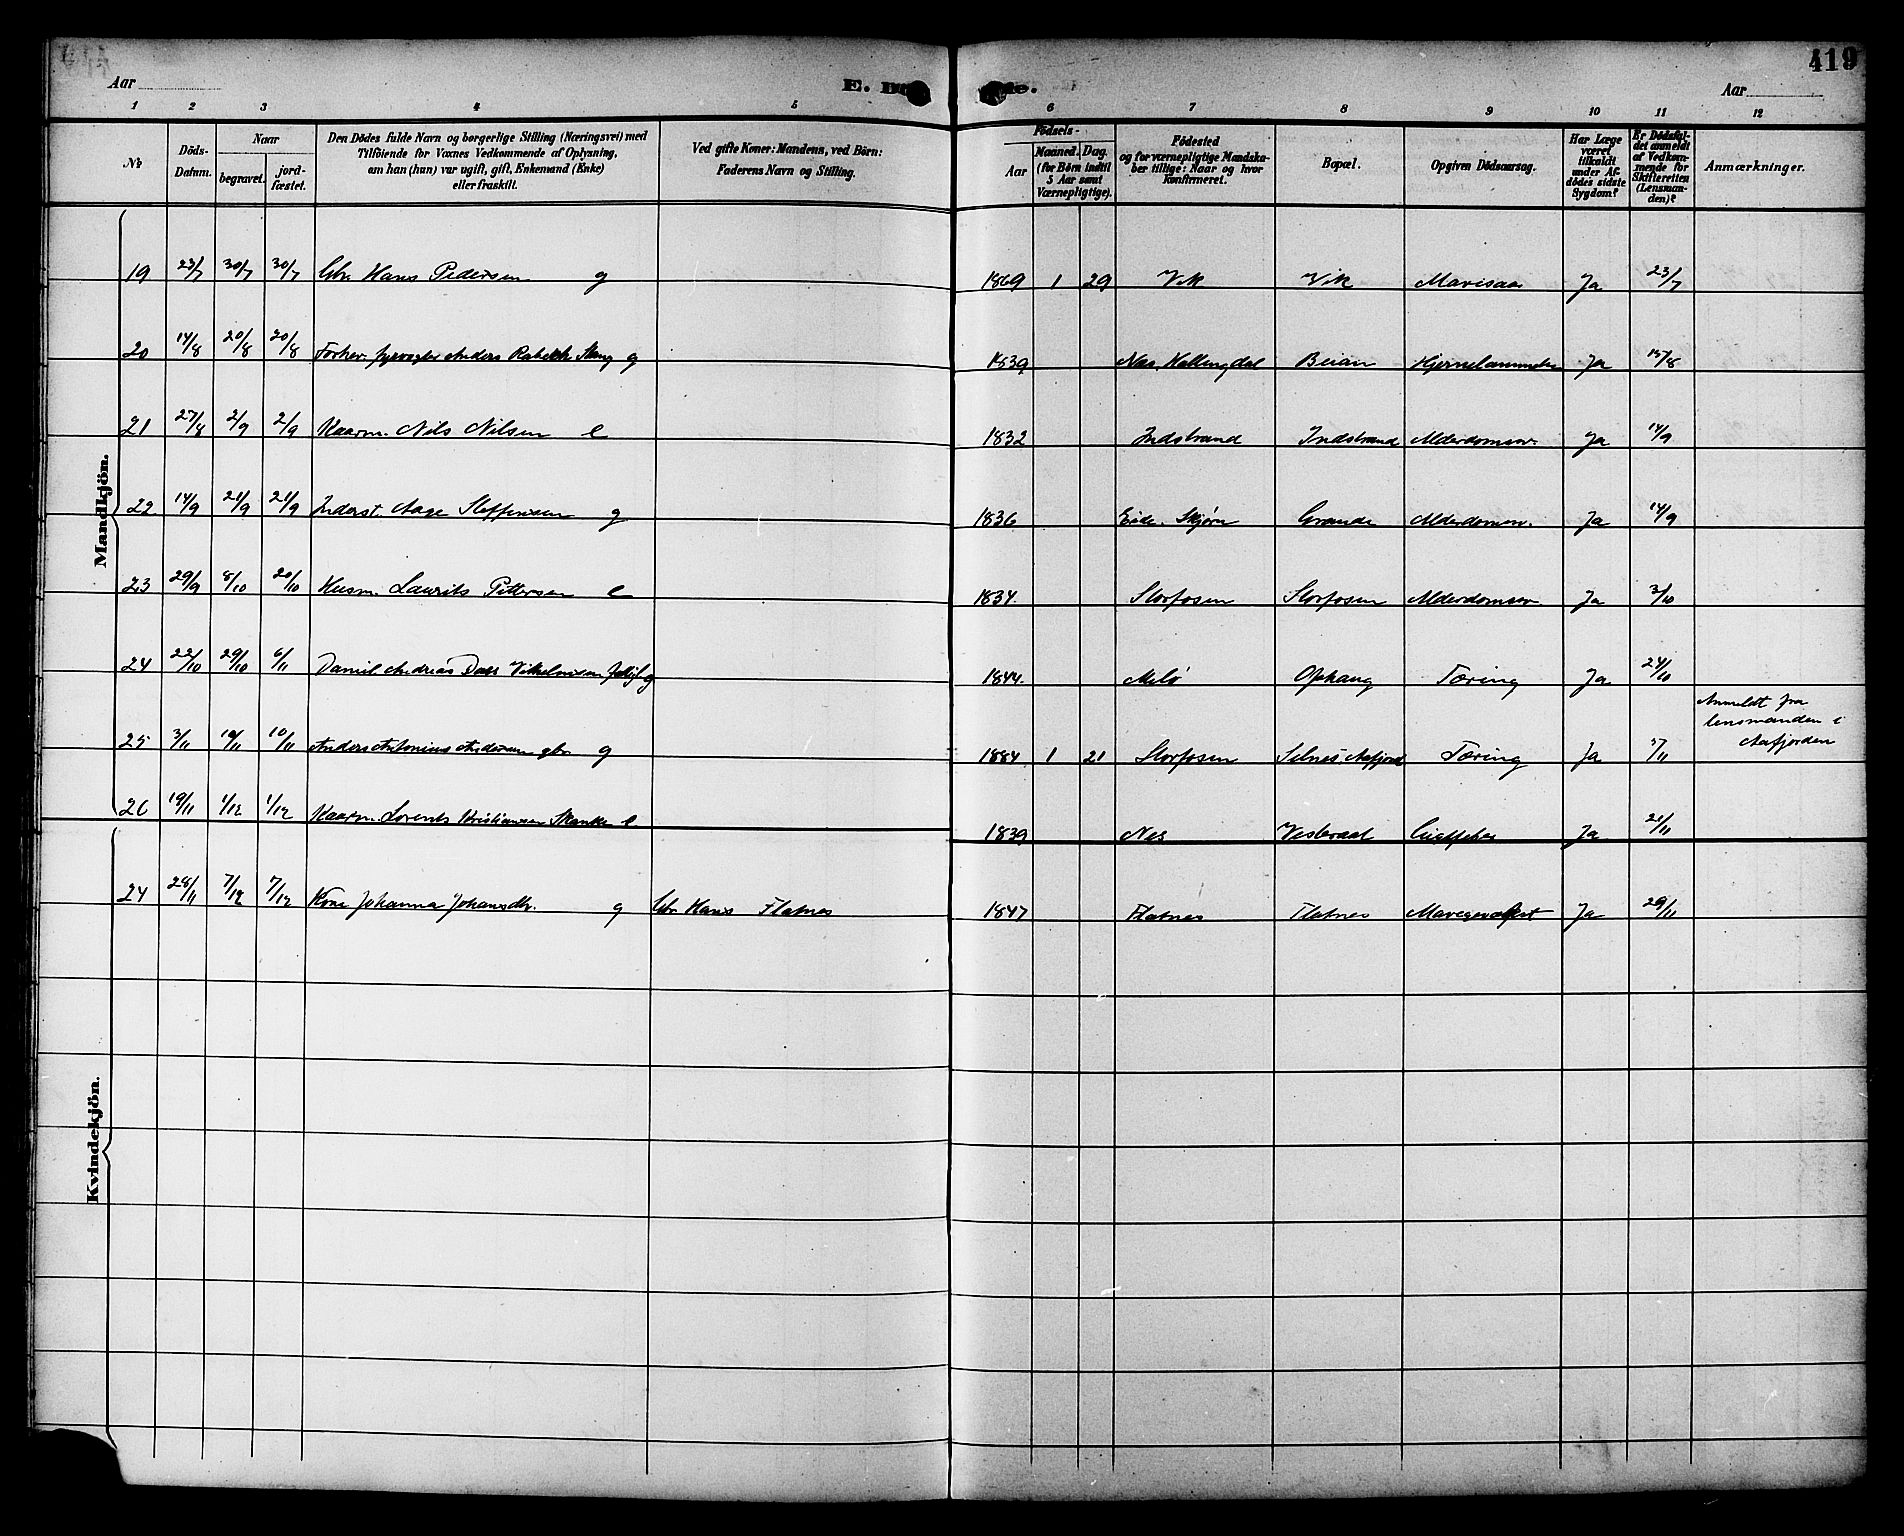 419
Aar
E. D de.
Aar
1 2 3 4 5 6 7 8 9 10 11 12
No
Döds-Datum.
Naar
begravet.
jord-fæstet.
Den Dödes fulde Navn og borgerlige Stilling (Næringsvei) med
Tilföiende for Voxnes Vedkommende af Oplysning,
om han (hun) var ugift, gift, Enkemand (Enke)
eller fraskilt.
Ved gifte Koner: Mandens, ved Börn:
Faderens Navn og Stilling.
Födsels-
Aar
Maaned. Dag.
(for Börn indtil
5 Aar samt
Værnepligtige).
Födested
og for værnepligtige Mandska-
ber tillige: Naar og hvor
konfirmeret.
Bopæl.
Opgiven Dödsaarsag.
Har Læge
været
tilkaldt
under Af-
dödes sidste
Sygdom?
Er Dödsfal-
det anmeldt
af Vedkom-
mende for
Skifteretten
(Lensman-
den)?
Anmærkninger.
Mandkjön.
19 23/7 30/7 30/7 Gbr. Hans Pedersen g 1869 1 29 Vik Vik Ja 23/7
20 14/8 20/8 20/8 Forhev. fyrvogter Anders g 1839 Nes, Hallingdal Beian Ja 15/8
21 27/8 2/9 2/9 Kaarm. Nils Nilsen e 1832 Indstrand Indstrand Alderdomssv. Ja 14/9
22 14/9 21/9 21/9 Inderst. Aage Steffensen g 1836 Eide, Skjørn Grande Alderdomssv. Ja 14/9
23 29/9 8/10 20/10 Husm. Laurits Pettersen e 1834 Storfosen Storfosen Alderdomssv. Ja 3/10
24 22/10 29/10 6/11 Daniel Andreas Dass Vilhelmsen g 1844 Melø Ophaug Tæring Ja 24/10
25 3/11 10/11 10/11 Anders Antonius Andersen gbr. g 1884 1 21 Storfosen Selnes Aafjord Tæring Ja 5/11 Anmeldt fra
lensmanden i
Aafjorden
26 19/11 1/12 1/12 Kaarm. Lorents Kristiansen e 1839 Nes Vesteraat Ja 21/11
Kvindekjön.
24 28/11 7/12 7/12 Kone Johanna Johansdtr. g Gbr. Hans Flatnes 1847 Flatnes Flatnes Ja 29/11